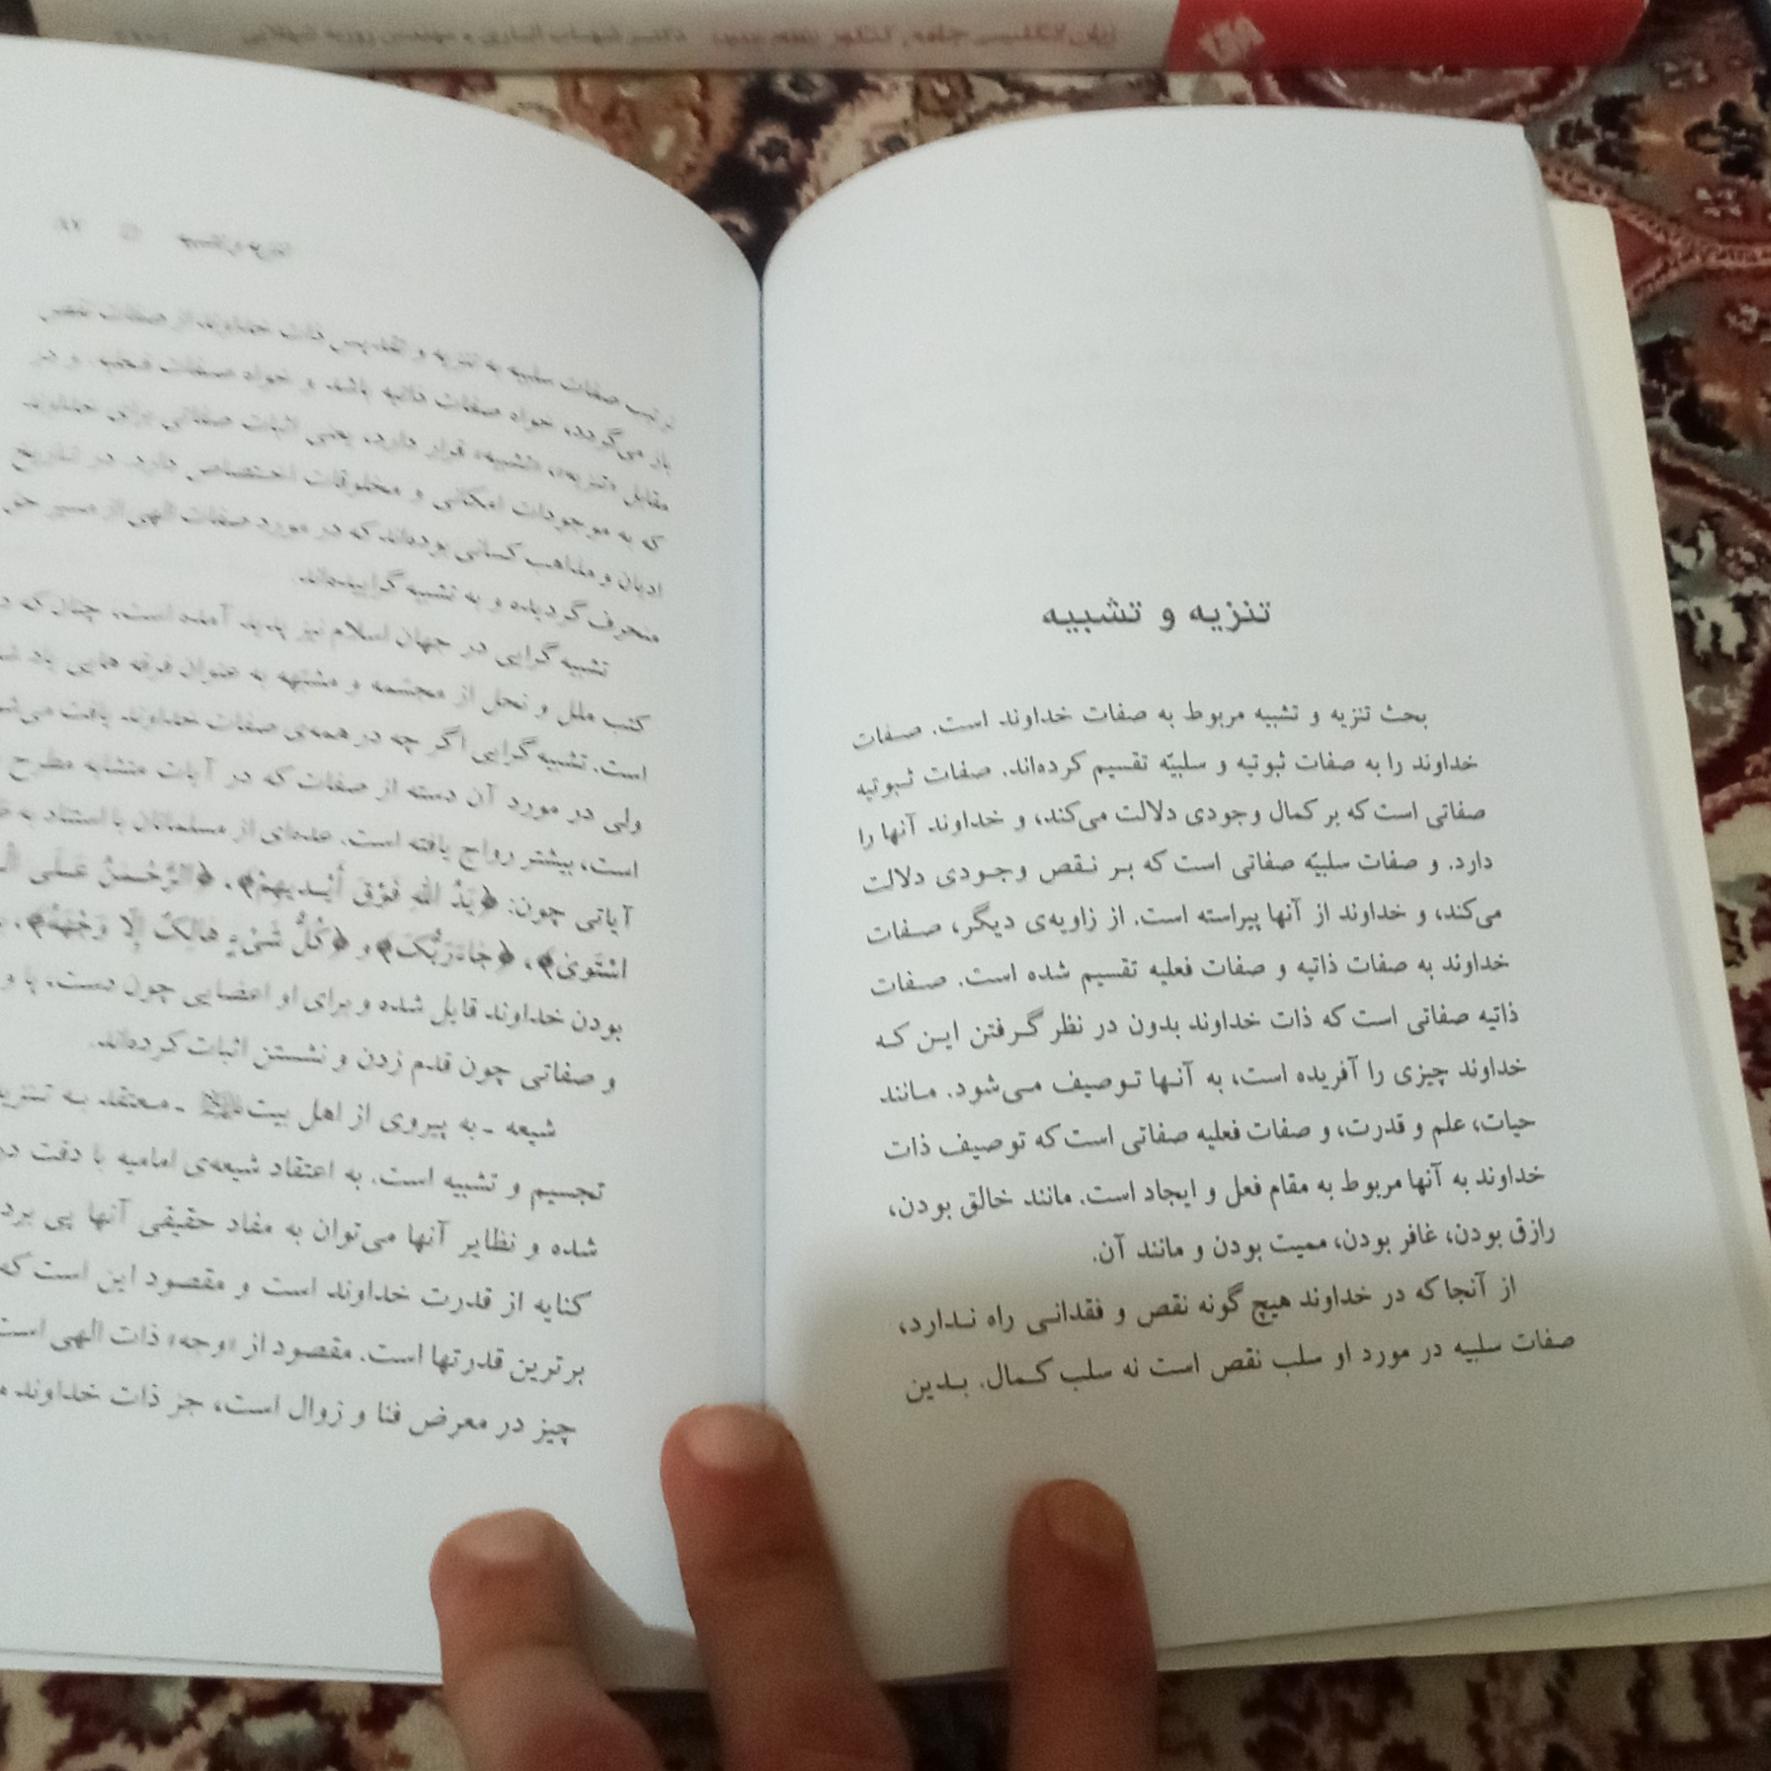 تنزیه و تشبیه
بحث تنزیه و تشبیه مربوط به صفات خداوند است. صفات
خداوند را به صفات ثبوتیه و سلبیّه تقسیم کرده‌اند. صفات ثبوتیه
صفاتی است که بر کمال وجودی دلالت می‌کند، و خداوند آنها را
دارد. و صفات سلبیّه صفاتی است که بر نقص وجودی دلالت
می‌کند، و خداوند از آنها پیراسته است. از زاویه‌ی دیگر، صفات
خداوند به صفات ذاتیه و صفات فعلیه تقسیم شده است. صفات
ذاتیه صفاتی است که ذات خداوند بدون در نظر گرفتن این که
خداوند چیزی را آفریده است، به آنها توصیف می‌شود. مانند
حیات، علم و قدرت، و صفات فعلیه صفاتی است که توصیف ذات
خداوند به آنها مربوط به مقام فعل و ایجاد است. مانند خالق بودن،
رازق بودن، غافر بودن، ممیت بودن و مانند آن.
از آنجا که در خداوند هیچ گونه نقص و فقدانی راه ندارد،
صفات سلبیه در مورد او سلب نقص است نه سلب کمال. بدین
تنزیه و تشبیه
ترتیب صفات سلبیه به تنزیه و تقدیس ذات خداوند از صفات نقص
باز می‌گردد، خواه صفات ذاتیه باشد و خواه صفات فعلیه. و در
مقابل «تنزیه»، «تشبیه» قرار دارد، یعنی اثبات صفاتی برای خداوند
که به موجودات امکانی و مخلوقات اختصاص دارد. در تاریخ
ادیان و مذاهب کسانی بوده‌اند که در مورد صفات الهی از مسیر حق
منحرف گردیده و به تشبیه گراییده‌اند.
تشبیه گرایی در جهان اسلام نیز پدید آمده است، چنان که
کتب ملل و نحل از مجسّمه و مشبّهه به عنوان فرقه هایی یاد
است. تشبیه گرایی اگر چه در همه‌ی صفات خداوند یافت
ولی در مورد آن دسته از صفات که در آیات متشابه مطرح
است، بیشتر رواج یافته است. عده‌ای از مسلمانان با استناد به
آیاتی چون: ﴿یَدُ اللهِ فَوْقَ أَیْدِیهِمْ﴾، ﴿الرَّحْمنُ عَلَی
اسْتَوی﴾، ﴿جَاءَ رَبُّکَ﴾ و ﴿کُلُّ شَیْءٍ هَالِکٌ إِلَّا وَجْهَهُ﴾،
بودن خداوند قایل شده و برای او اعضایی چون دست، پا و
و صفاتی چون قدم زدن و نشستن اثبات کرده‌اند.
شیعه ـ به پیروی از اهل بیت ـ معتقد به
تجسیم و تشبیه است. به اعتقاد شیعه‌ی امامیه با دقت
شده و نظایر آنها می‌توان به مفاد حقیقی آنها پی برد
کنایه از قدرت خداوند است و مقصود این است که
برترین قدرتها است. مقصود از «وجه» ذات الهی است
چیز در معرض فنا و زوال است، جز ذات خداوند